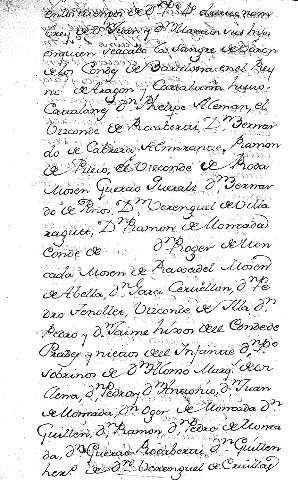 en los tiempos de
Rey de Juan y Martin su hijo
en quien se acabo la Sangre de Varon
de los Condes de Barcelona en el Rey
no de Aragon y Cataluña hubo
Catalanes Dn Phelipe Aleman, el
Vizconde de Rocaberti, Dn Bernar
do de Cabrera Almirante, Ramon
de el Vizconde de Roda
Mosen Guerao Queralt, Dn Bernar
do de Pinos, Dn Verenguel de Vila
ragut, Dn Ramon de Moncada
Conde de Dn Roger de Mon
cada Mosen de Mosen
de Abella, Dn Garci Dn Pe
dro Fonollet, Vizconde de Illa Dn
Pedro y Dn Jaime hixos del Conde de
Prades y nietos del Infante Dn Po
Sobrinos de Dn Alonso Marq. de Vi
llena, Dn Pedro y Dn Antonio, Dn Juan
de Moncada, Dn Oger de Moncada Dn
Guillen, Dn Ramon, Dn Pedro de Monca
da, Dn Guerao Rocaberti, Dn Guillen
de Dn Berenguel de Cruillas